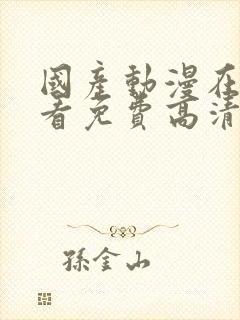 國產動漫在
看免費高清
孫金山